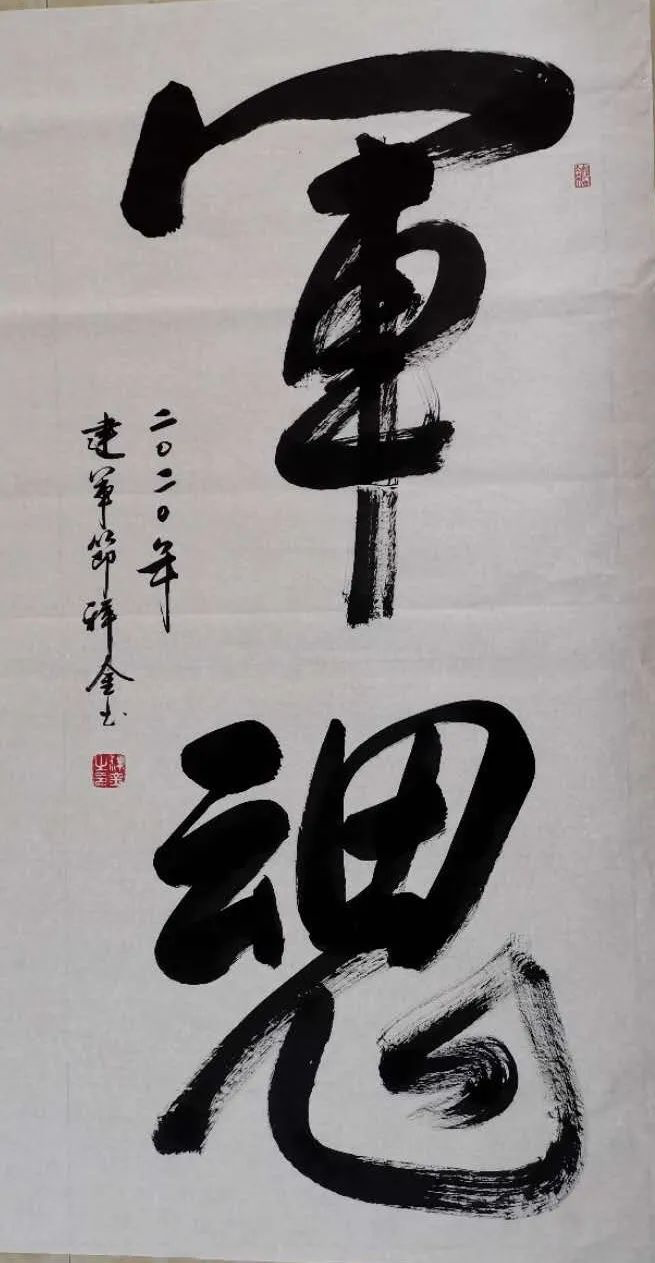 軍魂
二〇二〇年
建軍節祥金书